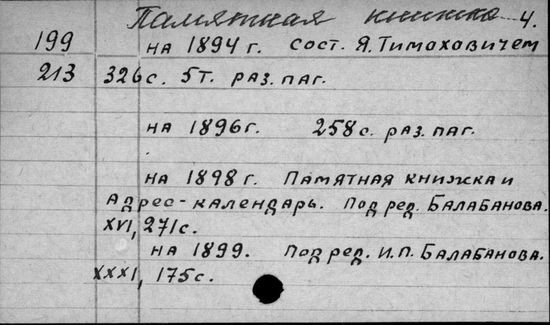 Памятная книжка 4.
199 на 1894 г. сост. Я. Тимаховичем
213 326 с. 5 т. раз. паг.
на 1896 г. 258 с. раз. паг.
на 1898 г. Памятная книжка и
Адрес-календарь. Под ред. Балабанова.
XVI, 271 с.
на 1899. Под ред. И.П. Балабанова.
XXXI, 175 с.